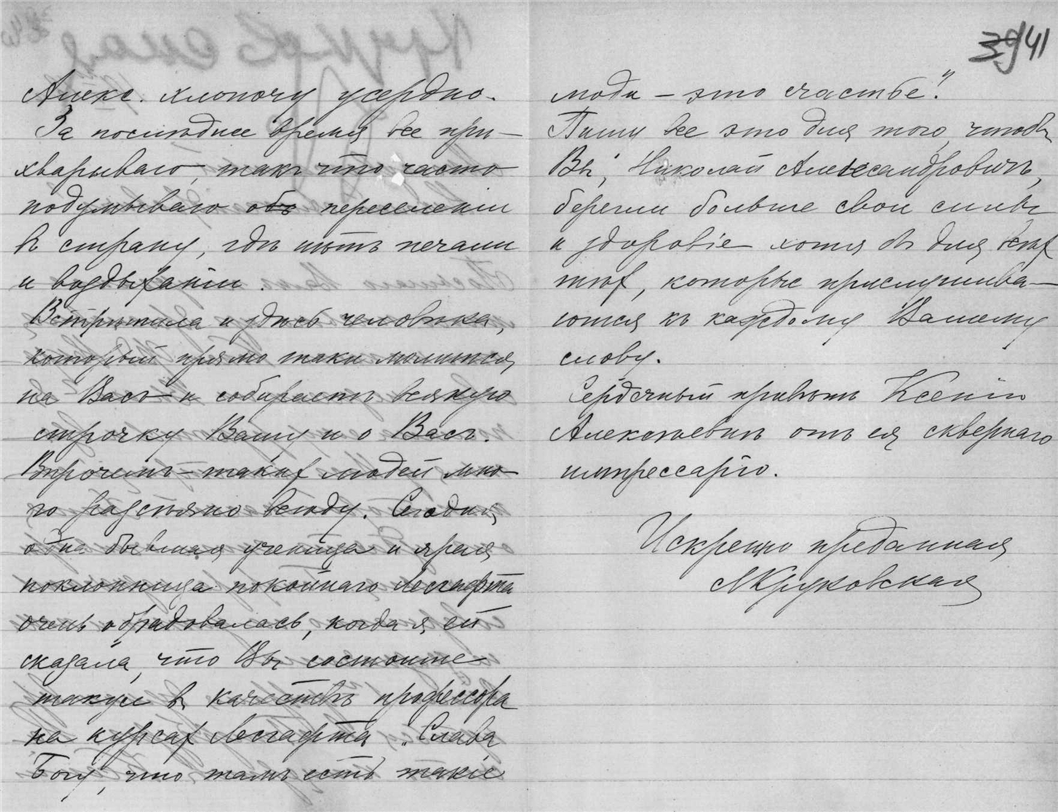 41
Алекс. хлопочу усердно.
За последнее время все при-
хварываю, такъ что часто
подумываю объ переселеніи
въ страну, гдѣ нѣтъ печали
и воздыханіи.
Встрѣтила и здѣсь человѣка,
который прямо таки молится
на Васъ и собираетъ всякую
строчку Вашу и о Васъ.
Впрочемъ – такихъ людей мно-
го разсѣяно всюду. Сегодня,
одна бывшая ученица и ярая
поклонница покойнаго Лесгафта
очень обрадовалась, когда я ей
сказала, что Вы состоите
также въ качествѣ профессора
на курсах Лесгафта. "Слава
Богу, что тамъ есть такіе
люди – это счастье".
Пишу все это для того, чтобы
Вы, Николай Александровичъ,
берегли больше свои силы
и здоровіе хотя бъ для всѣх
тѣх, которые прислушива-
ются къ каждому Вашему
слову.
Сердечный привѣтъ Ксеніи
Алексѣевнѣ отъ ея сквернаго
импрессаріо.
Искренно преданная
ЛКруковская